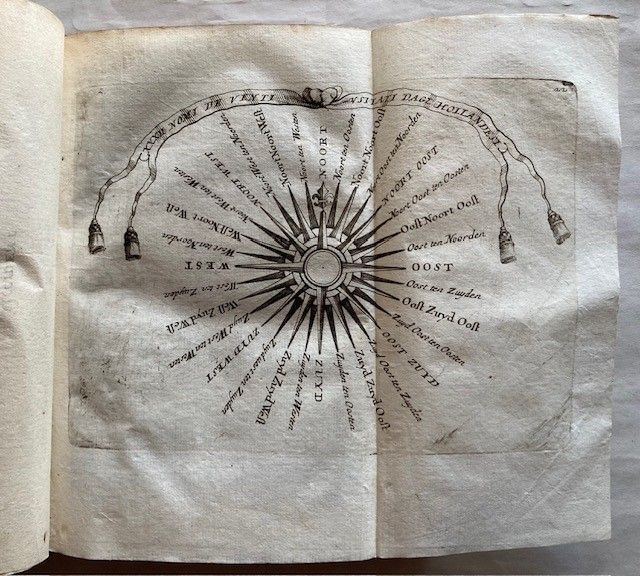 XXXII NOMI DE VENTI
VSITATI DAGL' HOLLANDESI
NOORT
Noort ten Oosten
Noort Noort Oost
Noort Oost ten Noorden
NOORT OOST
Noort Oost ten Oosten
Oost Noort Oost
Oost ten Noorden
OOST
Oost ten Zuyden
Oost Zuyd Oost
Zuyd Oost ten Oosten
OOST ZUYD
Zuyd Oost ten Zuyden
Zuyd Zuyd Oost
Zuyden ten Oosten
ZUYD
Zuyden ten Westen
Zuyd Zuyd West
Zuydwest ten Zuyden
ZUYD WEST
Zuyd West ten Westen
West Zuyd West
West ten Zuyden
WEST
West ten Noorden
West Noort West
Noort West ten Westen
NOORT WEST
Noort West ten Noorden
Noort Noort West
Noort ten Westen